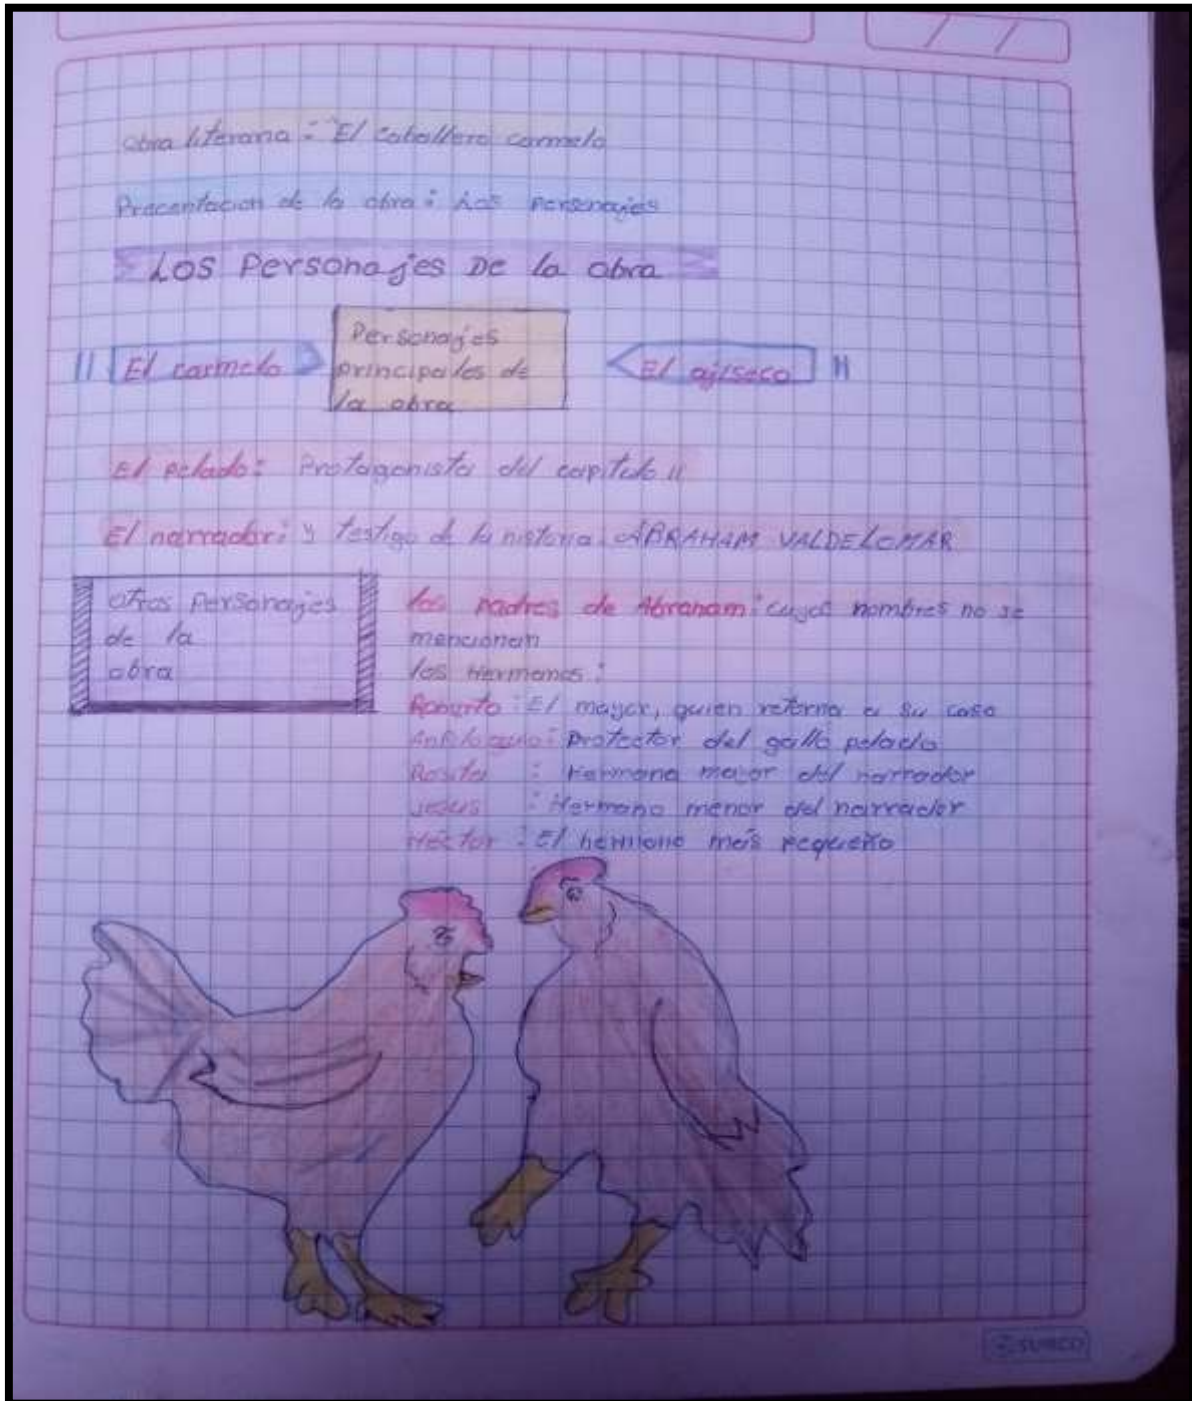 Obra literaria : "El caballero carmelo
Precentacion de la obra : Los personajes
LOS Personajes De la obra
El carmelo
Personajes
principales de
la obra
El ajiseco
El pelado : Protagonista del capitulo II
El narrador : y testigo de la historia ABRAHAM VALDELOMAR
otros personajes
de la
obra
los padres de Abraham : cuyos nombres no se
mencionan
los Hermanos :
Roberto : El mayor, quien retorna a su casa
Anfiloquio : Protector del gallo pelado
Rosita : Hermana mayor del narrador
Jesus : Hermano menor del narrador
Héctor : El hermano más pequeño
SURCO